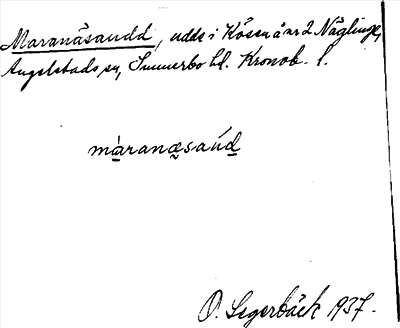 Maranäsaudd, udde i Kösen å nr 2 Näglinge,
Angelstads sn, Sunnerbo hd. Kronob. l.
màranæsaúd
O. Segerbäck 1937.